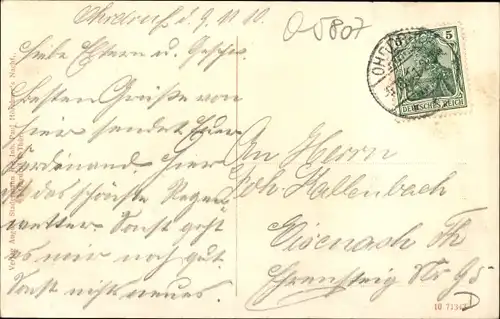 Ohrdruf d. 9. 10
O-5807
Liebe Eltern u. Geschw.
Besten Grüße von
hier sendet Euer
Ferdinand. Hier
ist das schönste Regen
wetter. Sonst geht
es mir noch gut.
Sonst nichts neues.
OHRDRUF
5
DEUTSCHES REICH
An Herrn
Joh. Kallenbach
Eisenach Th
Ehrensteig Nr 95
D
10 7134